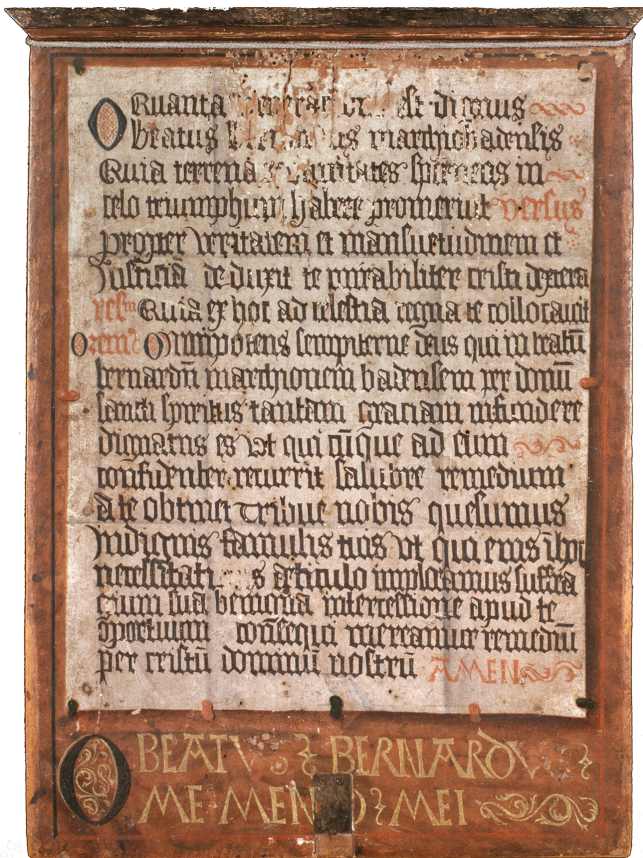 O Quanta est dignus
beatus marchio badensis
Quia terrena spernens in
celo triumphum habere promeruit versus
propter veritatem et mansuetudinem et
Justiciā deduxit te mirabiliter cristi dextera
resm Quia ex hoc ad celestia regna te collocavit
oremꝰ Omnipotens sempiterne deus qui in beatū
bernardū marchionem badensem per donū
sancti spiritus tantam graciam infundere
dignatus es vt qui cūque ad eum
confidenter recurrit salubre remedium
a te obtinet Tribue nobis quesumus
Indignis famulis tuis vt qui eius
necessitati s articulo imploramus suffra
gium sua benigna intercessione apud te
oportunum cōsequi mereamur remediū
per cristū dominū nostrū AMEN
O BEATV BERNARDV
ME MEN O MEI